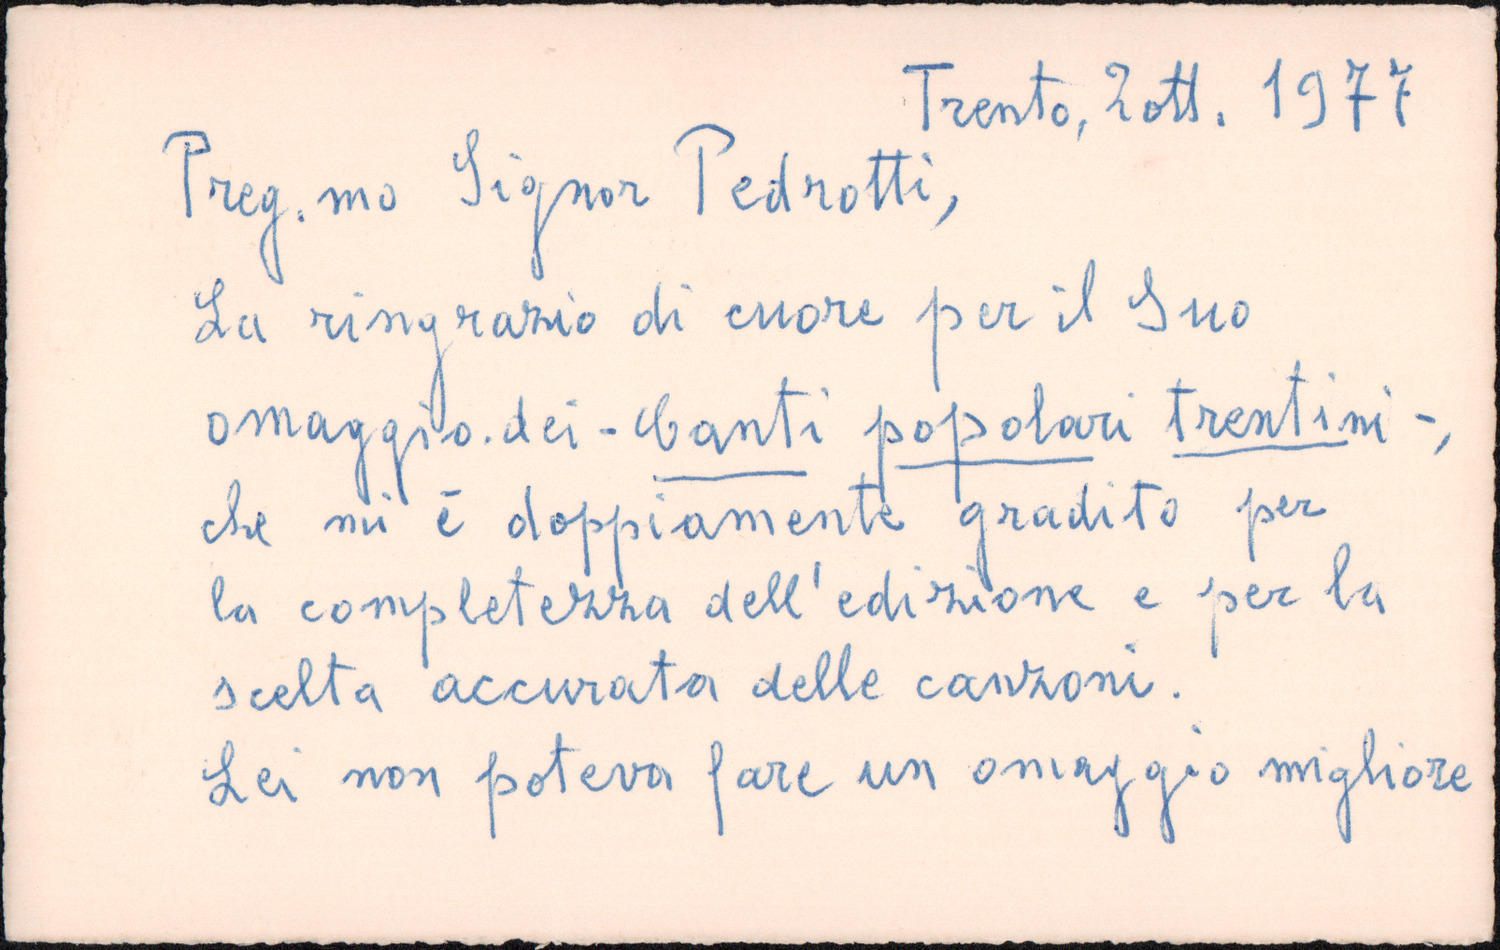 Trento, 2 ott. 1977
Preg.mo Signor Pedrotti,
La ringrazio di cuore per il Suo
omaggio dei - Canti popolari trentini -,
che mi è doppiamente gradito per
la completezza dell'edizione e per la
scelta accurata delle canzoni.
Lei non poteva fare un omaggio migliore